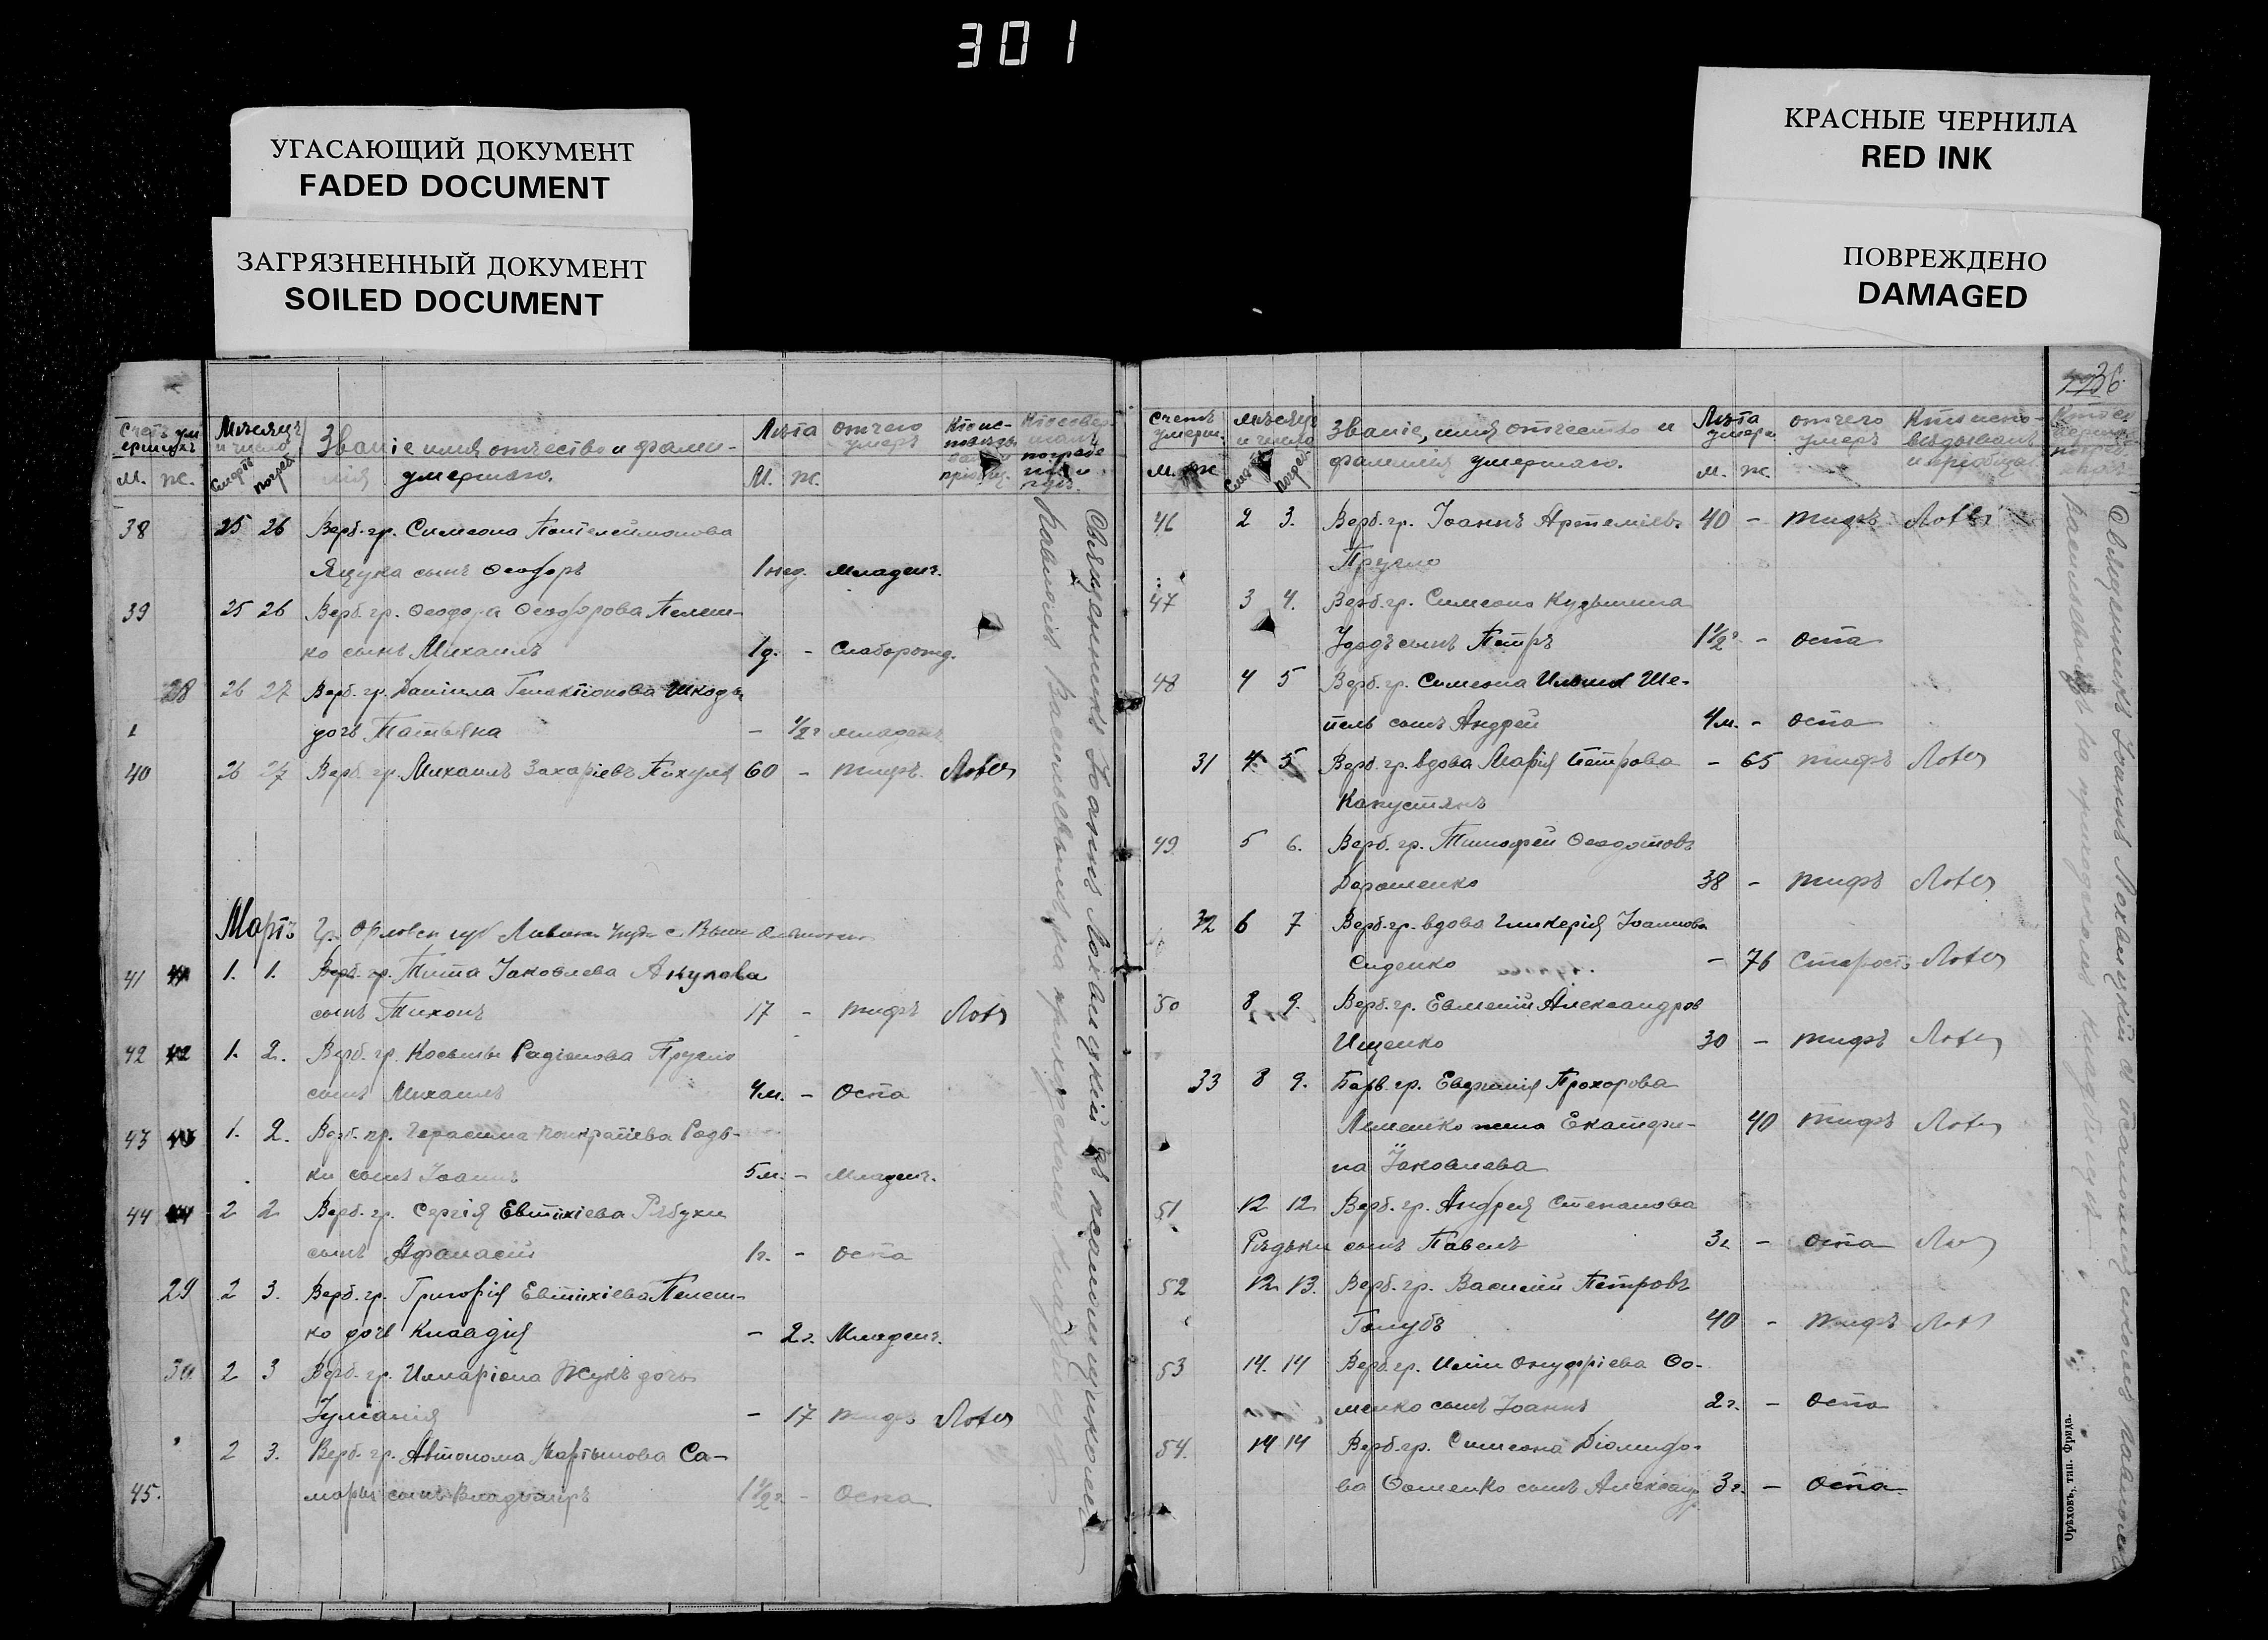 301
УГАСАЮЩИЙ ДОКУМЕНТ
FADED DOCUMENT
ЗАГРЯЗНЕННЫЙ ДОКУМЕНТ
SOILED DOCUMENT
КРАСНЫЕ ЧЕРНИЛА
RED INK
ПОВРЕЖДЕНО
DAMAGED
Счетъ ум
ершихъ
М. Ж.
Мѣсяцъ
и число
смерти погреб
Званіе имя отчество и фами-
лія умершаго.
Лѣта
М. Ж.
отчего
умеръ
Кто ис-
повѣды
Кто совер
шалъ
погребе
ніе и
гдѣ.
38 25 26 Верб. гр. Симеона Пантелеимонова
Яцука сынъ Ѳеодоръ 1 нед. Младенч.
39 25 26 Верб. гр. Ѳеодора Ѳеодорова Пелеш-
ко сынъ Михаилъ 1 д. - Слаборожд.
28 26 27 Верб. гр. Даніила Шкоды
дочь Татьяна - 1/2 г младенч
40 26 27 Верб. гр. Михаилъ Захаріевъ Пихуля 60 - тифъ
Мартъ Гр. Орловск губ
41 41 1. 1. Верб. гр. Тита Іаковлева Акулова
сынъ Тихонъ 17 - тифъ
42 42 1. 2. Верб. гр. Косьмы Радіонова Пругло
сынъ Михаилъ 4 м. - Оспа
43 43 1. 2. Верб. гр. Герасима Понкратіева Редь-
ки сынъ Іоаннъ 5 м. - Младенч.
44 44 2 2 Верб. гр. Сергія Евтихіева Рябухи
сынъ Афанасій 1 г. - оспа
29 2 3. Верб. гр. Григорія Евтихіева Пелеш-
ко дочь Клавдія - 2 г. Младенч.
30 2 3 Верб. гр. Илларіона Жукъ дочь
Іуліанія - 17 тифъ
2 3. Верб. гр. Автонома Мартынова Са-
45. мары сынъ Владиміръ 1 1/2 г - Оспа
Священникъ Іоаннъ Лохвицкій съ псаломщикомъ
Павломъ Васильевымъ на приходскомъ кладбищѣ
36.
Счетъ
умерш.
М. Ж.
мѣсяцъ
и число
Смерт погреб.
Званіе, имя отчество и
фамилія умершаго.
Лѣта
умерш
М. Ж.
отчего
умеръ
Кто испо-
вѣдывалъ
и пріобщал
46 2 3. Верб. гр. Іоаннъ Артеміев.
Пругло 40 - тифъ
47 3 4. Верб. гр. Симеона Кузьмина
Удодъ сынъ Петръ 1 1/2 г - оспа
48 4 5 Верб. гр. Симеона Ильина Ше-
пель сынъ Андрей 4 м. - оспа
31 4 5 Верб. гр. вдова Марія Петрова
Капустянъ - 65 тифъ
49 5 6. Верб. гр. Тимофей Ѳеодотовъ
Дорошенко 38 - тифъ
32 6 7 Верб. гр. вдова Гликерія Іоаннова
Сиденко - 76 Старость
50 8 9. Верб. гр. Евменій Александров
Ищенко 30 - тифъ
33 8 9. Барв. гр. Евфимія Прохорова
жена Екатери-
на Іаковлева 40 тифъ
51 12 12 Верб. гр. Андрея Степанова
Рѣдьки сынъ Павелъ 3 г - оспа
52 12 13. Верб. гр. Василій Петровъ
Голубъ 40 - тифъ
53 14. 14 Верб. гр. Иліи Онуфріева Ѳо-
менко сынъ Іоаннъ 2 г. - оспа
54. 14 14 Верб. гр. Симеона Діомидо-
ва Ѳоменко сынъ Александ 3 г. - оспа.
Священникъ Іоаннъ Лохвицкій съ псаломщикомъ Павломъ
Васильевымъ на приходскомъ кладбищѣ.
Орѣховъ, тип. Фрида.